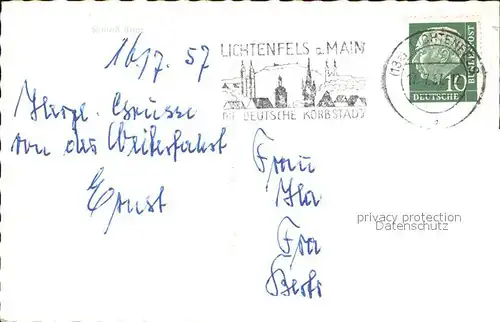 16/7. 57
LICHTENFELS a. MAIN
DIE DEUTSCHE KORBSTADT
LICHTENFELS
DEUTSCHE BUNDESPOST
10
Herzl. Grüsse
von der Weiterfahrt
Ernst
Frau
Ila
Fra
Berli
privacy protection
Datenschutz